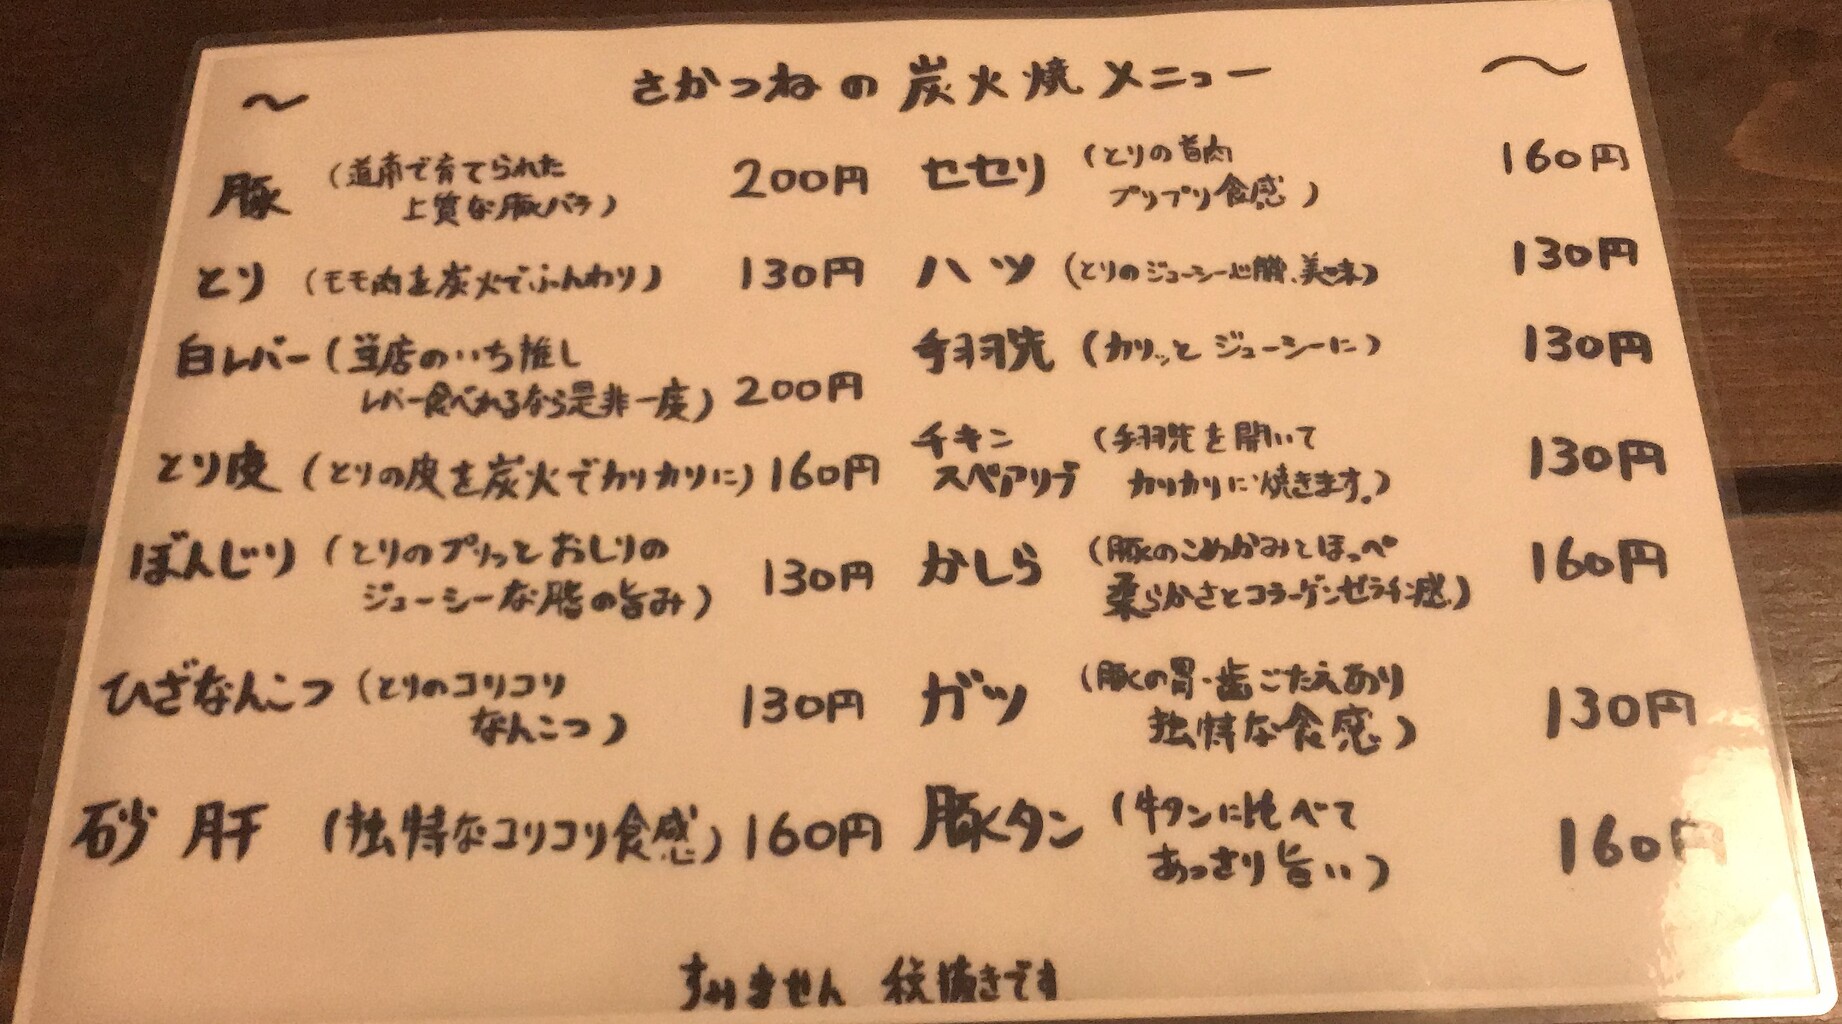 ～ さかつねの炭火焼メニュー ～
豚 (道南で育てられた
上質な豚バラ) 200円
とり (モモ肉を炭火でふんわり) 130円
白レバー (当店のいち推し
レバー食べれるなら是非一度) 200円
とり皮 (とりの皮を炭火でカリカリに) 160円
ぼんじり (とりのプリっとおしりの
ジューシーな脂の旨み) 130円
ひざなんこつ (とりのコリコリ
なんこつ) 130円
砂肝 (独特なコリコリ食感) 160円
セセリ (とりの首肉
プリプリ食感) 160円
ハツ (とりのジューシー心臓、美味) 130円
手羽先 (カリッと ジューシーに) 130円
チキン
スペアリブ (手羽先を開いて
カリカリに焼きます。) 130円
かしら (豚のこめかみとほっぺ
柔らかさとコラーゲンゼラチン感) 160円
ガツ (豚の胃・歯ごたえあり
独特な食感) 130円
豚タン (牛タンに比べて
あっさり旨い) 160円
すみません 税抜きです